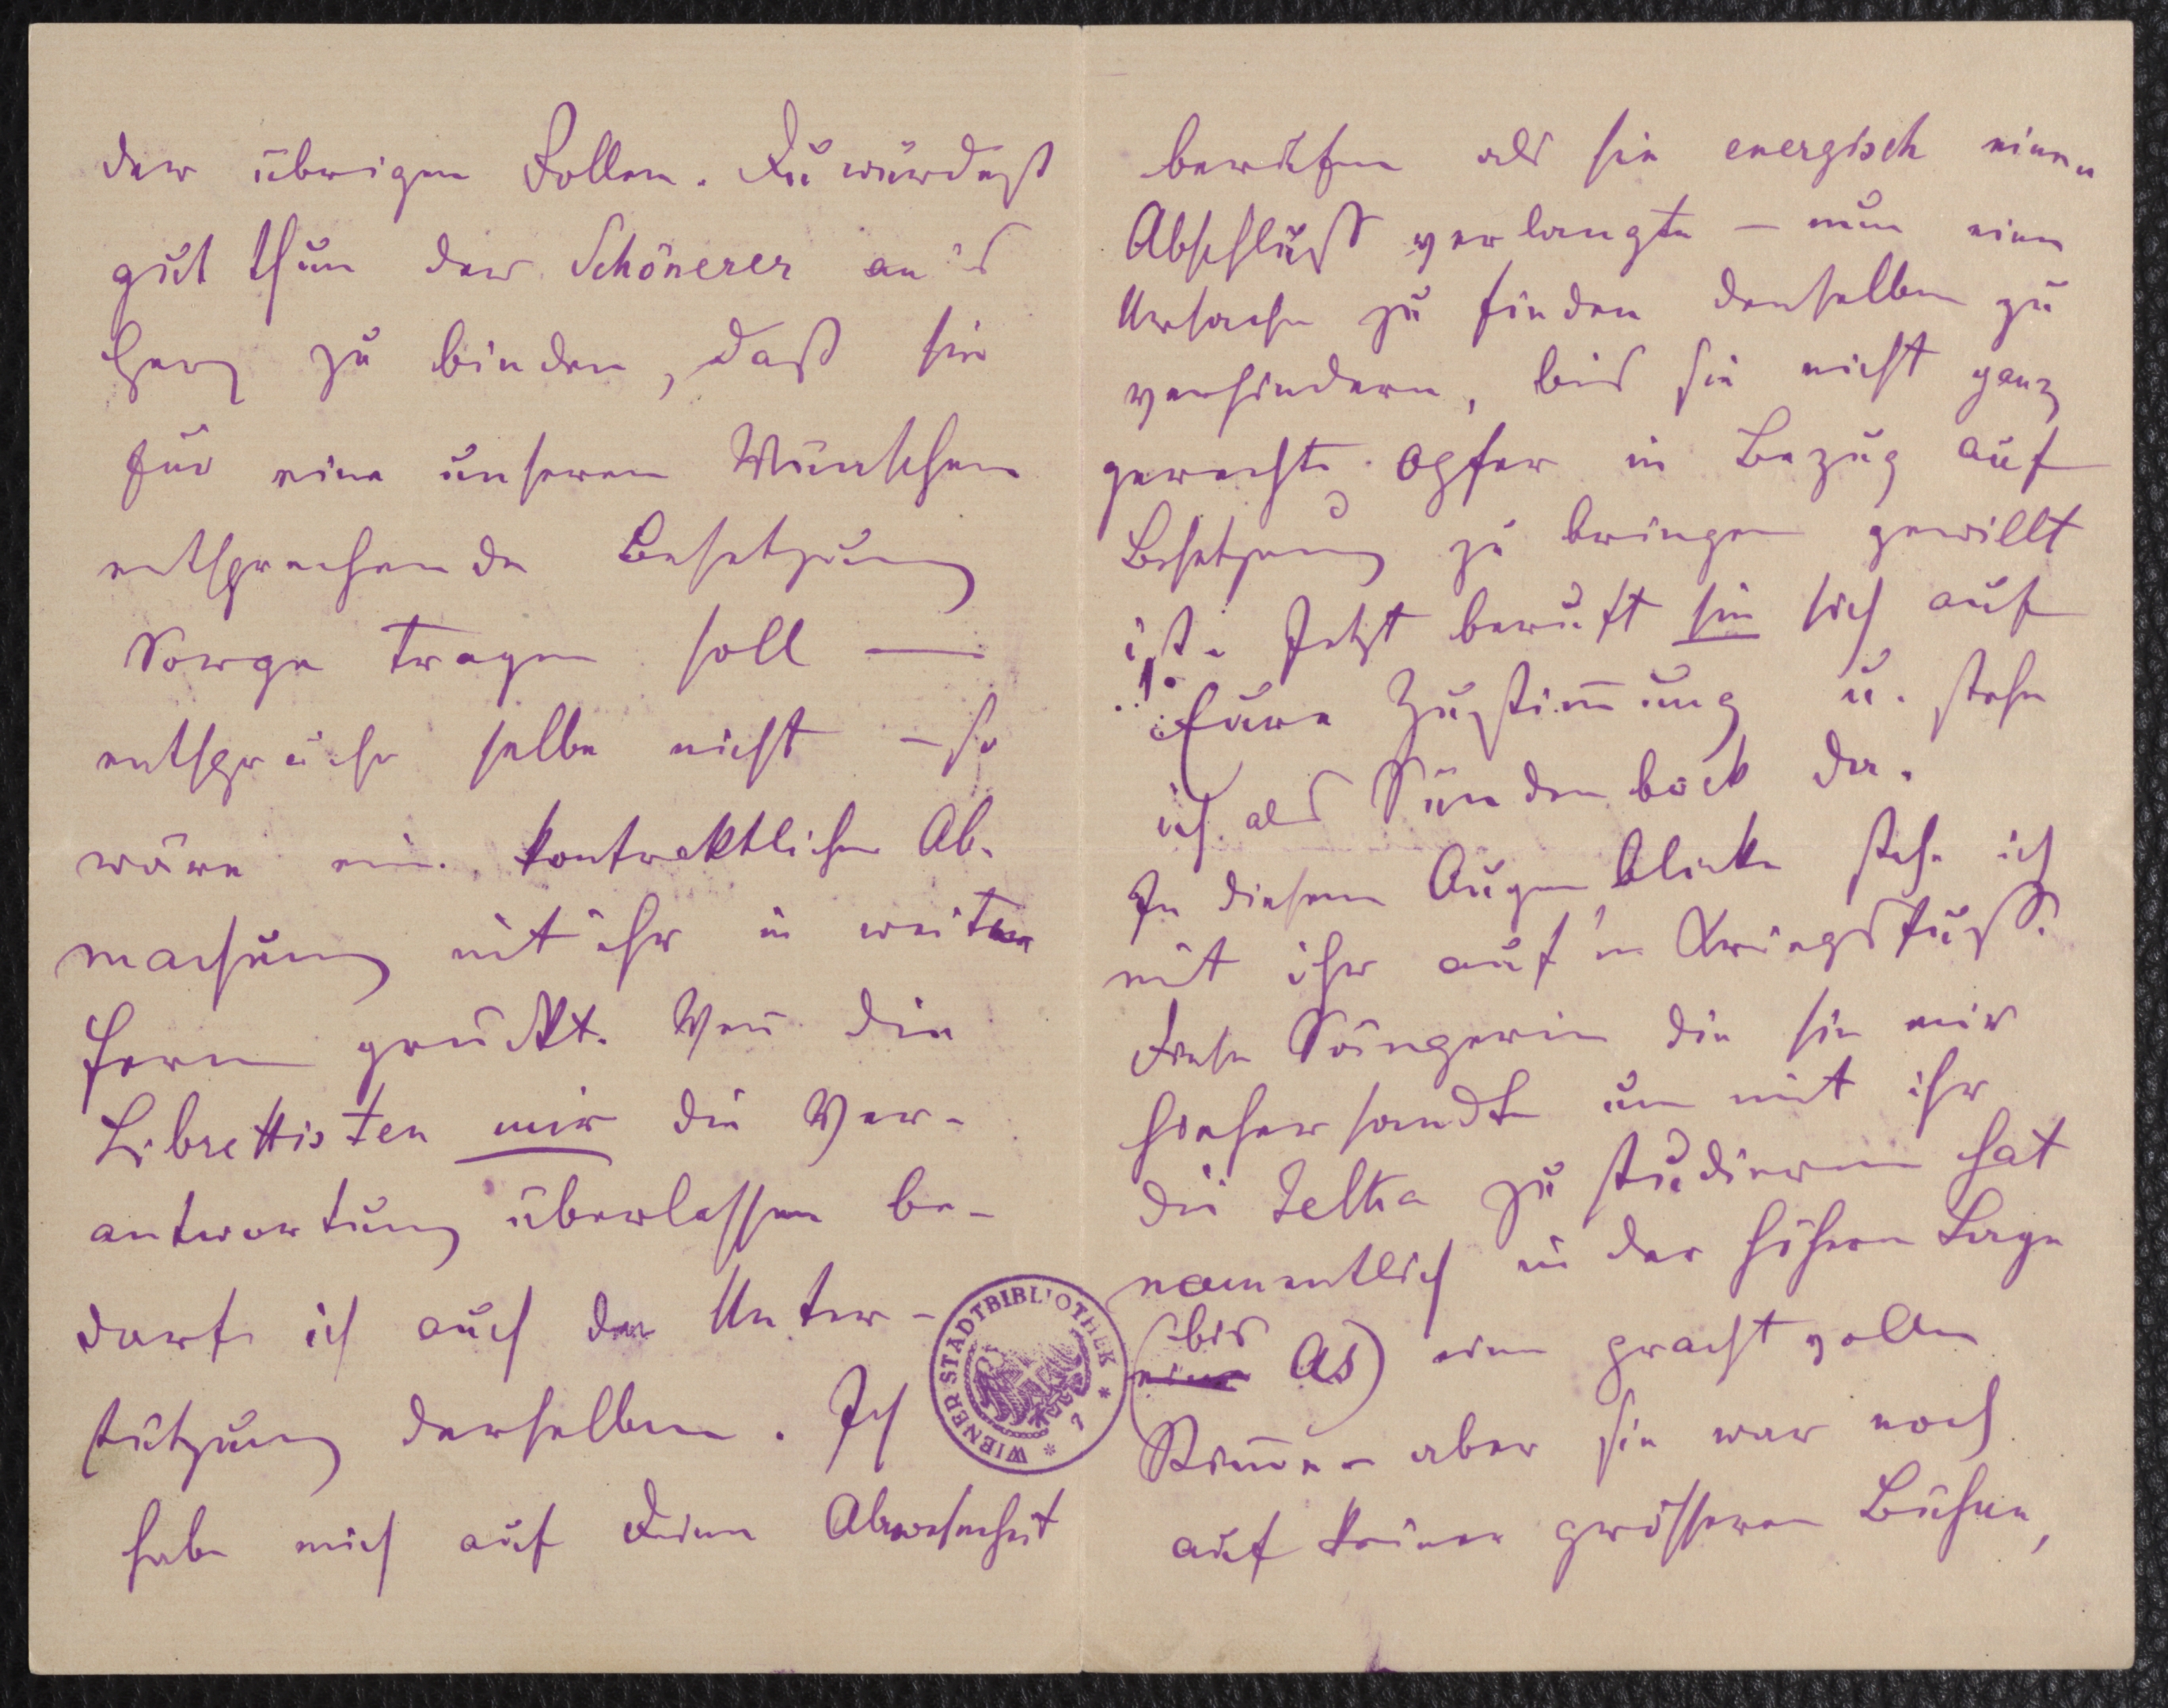 der übrigen Rollen. Du würdest
gut thun der Schönerer an's
Herz zu binden, daß sie
für eine unseren Wünschen
entsprechende Besetzung
Sorge tragen soll —
entspräche selbe nicht – so
wäre eine kontraktliche Ab-
machung mit ihr in weiter
Ferne gerückt. Weñ die
Librettisten mir die Ver-
antwortung überlassen be-
darf ich auch der Unter-
stützung derselben. Ich
habe mich auf Deine Abwesenheit
WIENER STADTBIBLIOTHEK
berufen als sie energisch einen
Abschluß verlangte – nun eine
Ursache zu finden denselben zu
verhindern, bis sie nicht ganz
gerechte Opfer in Bezug auf
Besetzung zu bringen gewillt
ist. Jetzt beruft sie sich auf
Eure Zustim̄ung u. stehe
ich als Sündenbock da.
In diesem Augenblicke stehe ich
mit ihr auf'm Kriegsfuß.
Diese Sängerin die sie mir
hieher sandte um mit ihr
die Jelka zu studieren hat
namentlich in der höhern Lage
(bis As) eine prachtvolle
Stim̄e – aber sie war noch
auf keiner größeren Bühne,